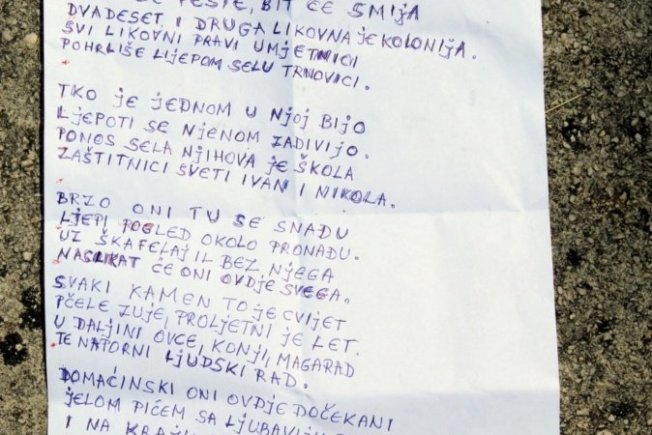 FEŠTE, BIT ĆE SMIJA
DVADESET I DRUGA LIKOVNA JE KOLONIJA.
SVI LIKOVNI PRAVI UMJETNICI
POHRLIŠE LIJEPOM SELU TRNOVICI.
TKO JE JEDNOM U NJOJ BIJO
LJEPOTI SE NJENOM ZADIVIJO.
PONOS SELA NJIHOVA JE ŠKOLA
ZAŠTITNICI SVETI IVAN I NIKOLA.
BRZO ONI TU SE SNAĐU
LJEPI POGLED OKOLO PRONAĐU.
UZ ŠKAFELAJ IL BEZ NJEGA
NASLIKAT ĆE ONI OVDJE SVEGA.
SVAKI KAMEN TO JE CVIJET
PČELE ZUJE, PROLJETNI JE LET.
U DALJINI OVCE, KONJI, MAGARAD
TE NAPORNI LJUDSKI RAD.
DOMAĆINSKI ONI OVDJE DOČEKANI
JELOM PIĆEM SA
I NA